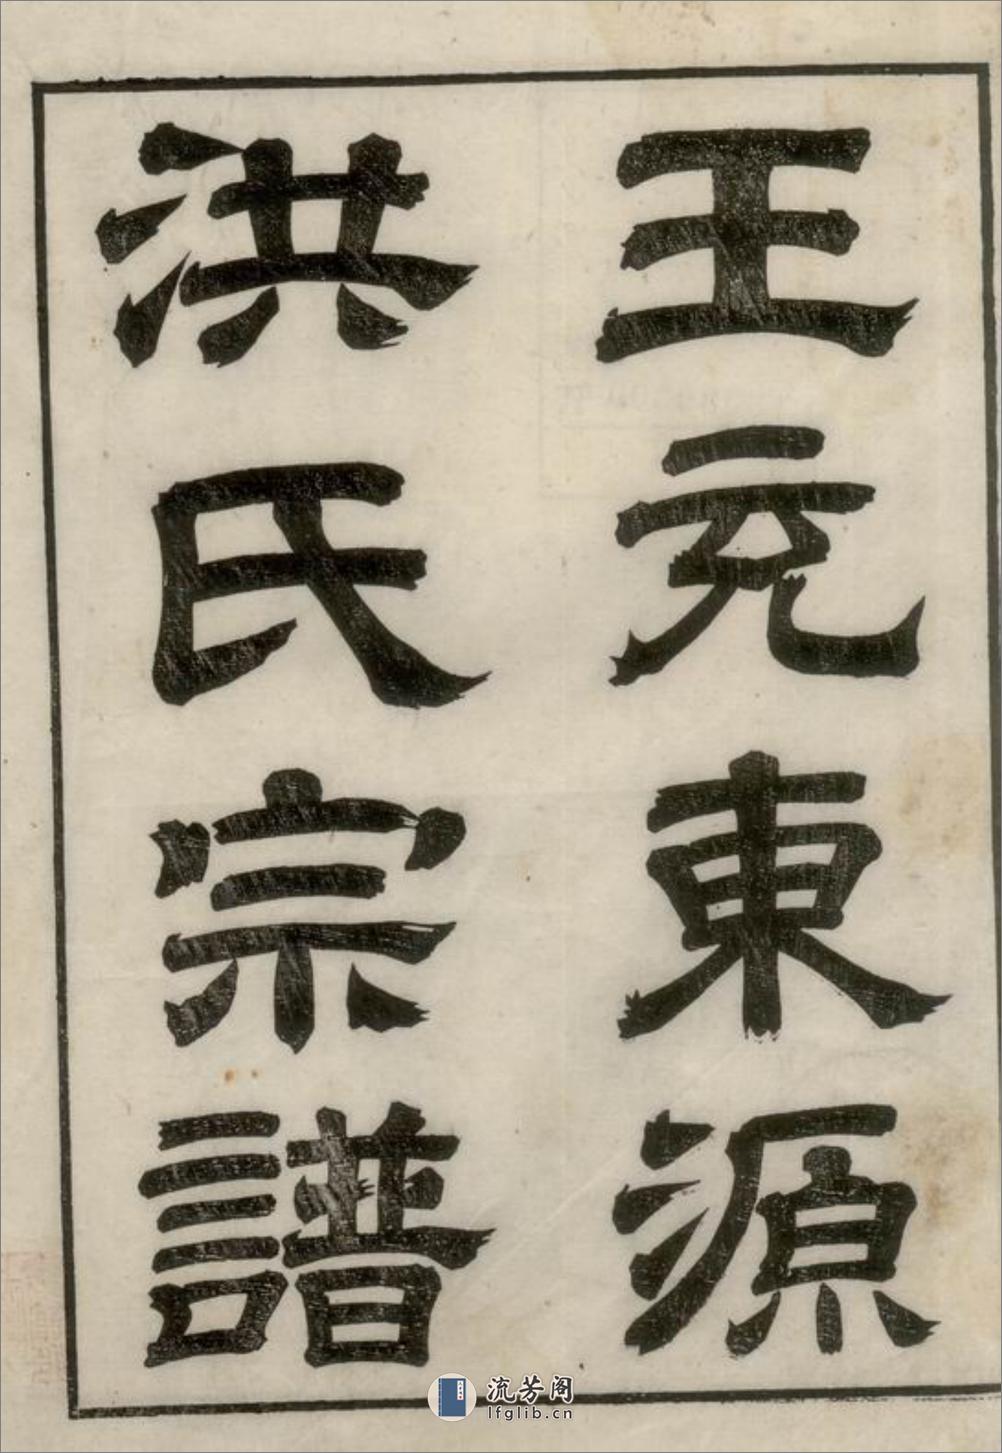 王元東源
洪氏宗譜
流芳阁
lfglib.cn